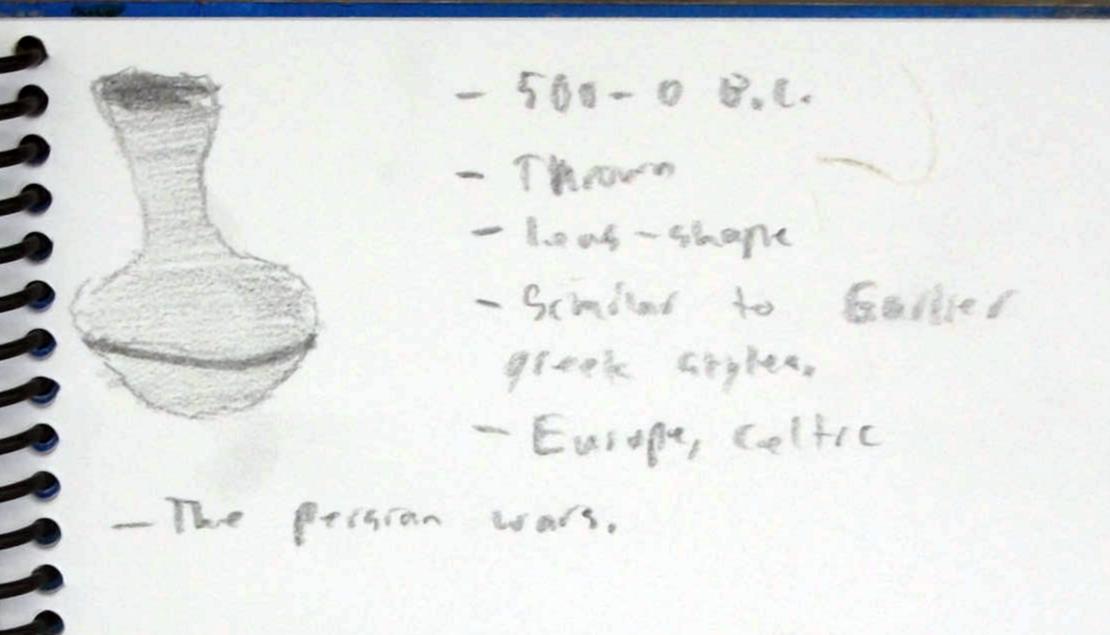 - 500-0 B.C.
- Thrown
- Lens-shape
- Similar to Earlier
greek styles.
- Europe, Celtic
- The persian wars.